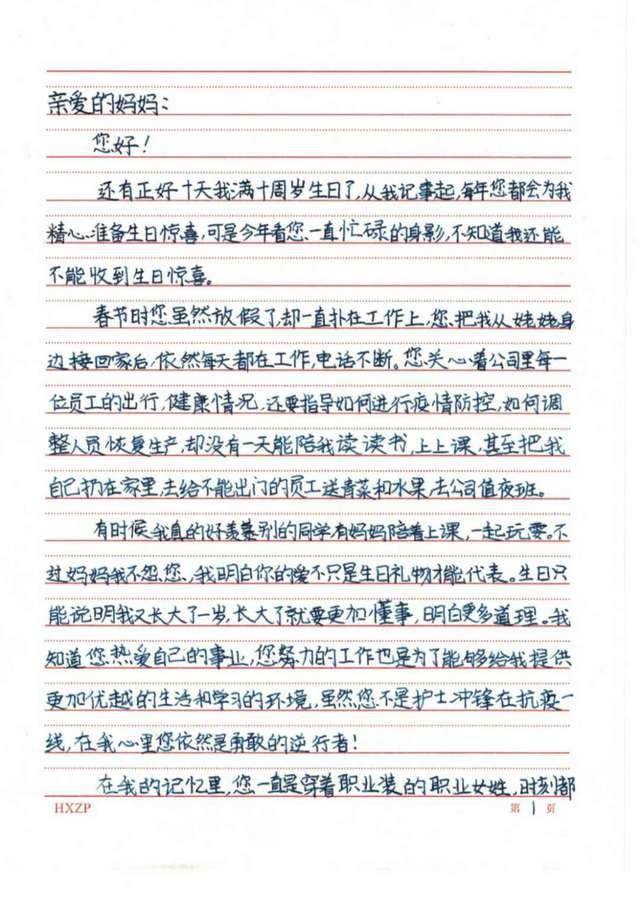 亲爱的妈妈:
您好!
还有正好十天我满十周岁生日了,从我记事起,每年您都会为我
精心准备生日惊喜,可是今年看您一直忙碌的身影,不知道我还能
不能收到生日惊喜。
春节时您虽然放假了,却一直扑在工作上,您把我从姥姥身
边接回家后,依然每天都在工作,电话不断。您关心着公司里每一
位员工的出行,健康情况,还要指导如何进行疫情防控,如何调
整人员恢复生产,却没有一天能陪我读读书,上上课,甚至把我
自己扔在家里,去给不能出门的员工送青菜和水果,去公司值夜班。
有时候我真的好羡慕别的同学有妈妈陪着上课,一起玩耍。不
过妈妈我不怨您,我明白你的爱不只是生日礼物才能代表。生日只
能说明我又长大了一岁,长大了就要更加懂事,明白更多道理。我
知道您热爱自己的事业,您努力的工作也是为了能够给我提供
更加优越的生活和学习的环境,虽然您不是护士冲锋在抗疫一
线,在我心里您依然是勇敢的逆行者!
在我的记忆里,您一直是穿着职业装的职业女性,时刻都
HXZP 第 1 页